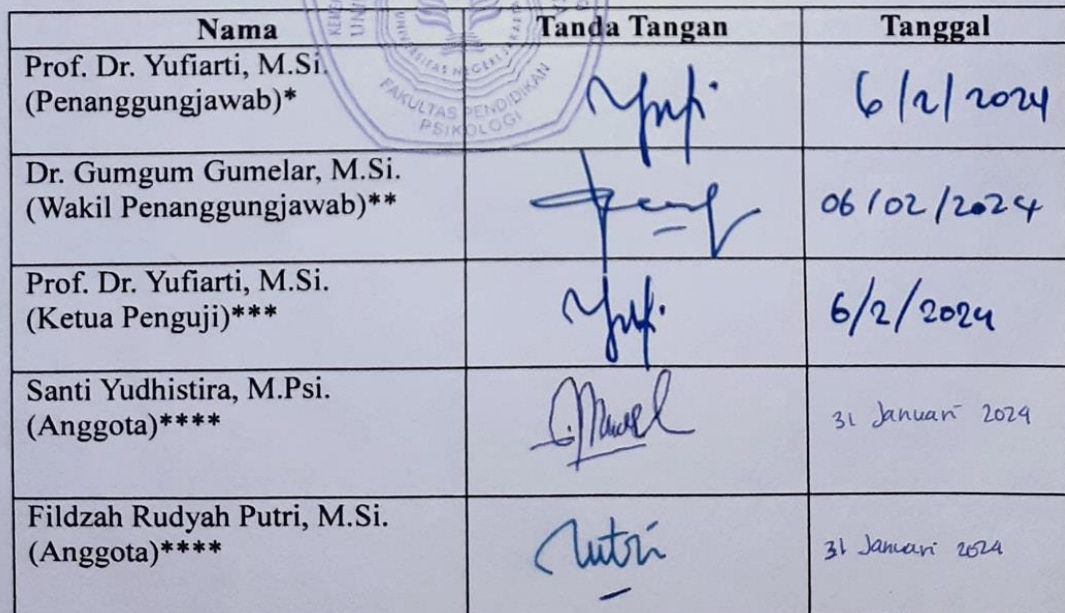 Nama Tanda Tangan Tanggal
Prof. Dr. Yufiarti, M.Si.
(Penanggungjawab)* 6/2/2024
Dr. Gumgum Gumelar, M.Si.
(Wakil Penanggungjawab)** 06/02/2024
Prof. Dr. Yufiarti, M.Si.
(Ketua Penguji)*** 6/2/2024
Santi Yudhistira, M.Psi.
(Anggota)**** 31 Januari 2024
Fildzah Rudyah Putri, M.Si.
(Anggota)**** Putri 31 Januari 2024
UNIVERSITAS NEGERI JAKARTA
FAKULTAS PENDIDIKAN
PSIKOLOGI